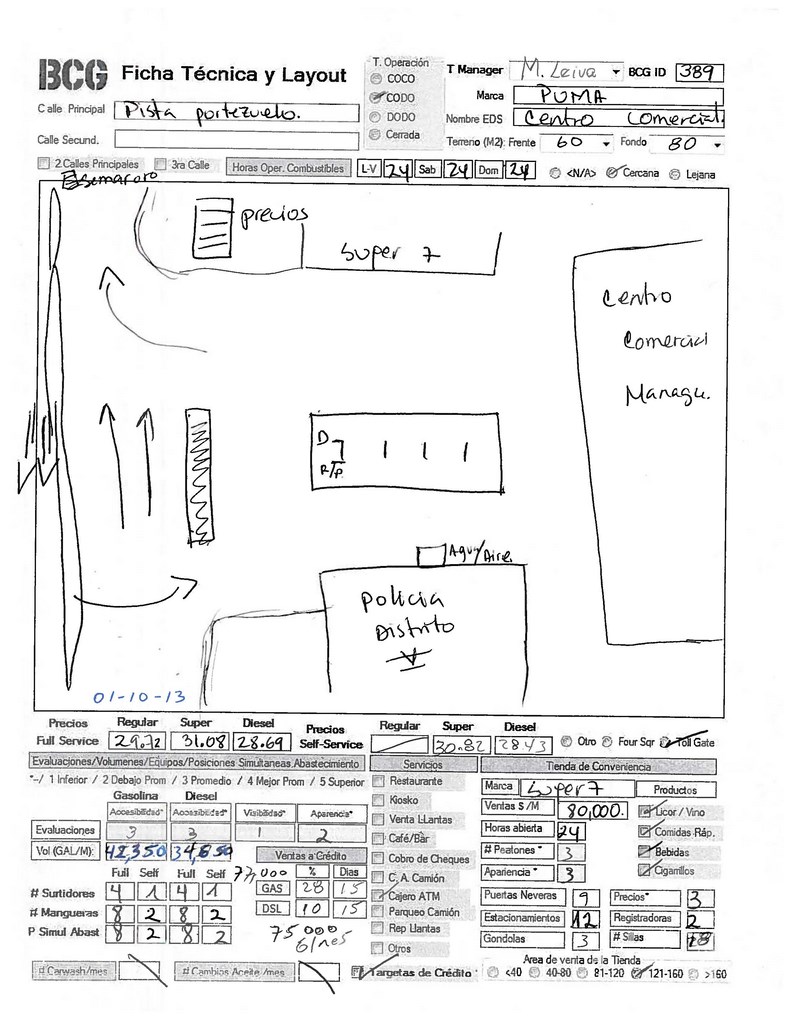 BCG Ficha Técnica y Layout
T. Operación
COCO
CODO
DODO
Cerrada
T Manager M. Leiva BCG ID 389
Marca PUMA
Nombre EDS Centro Comercial
Calle Principal Pista portezuelo.
Calle Secund.
Terreno (M2): Frente 60 Fondo 80
2 Calles Principales 3ra Calle Horas Oper. Combustibles L-V 24 Sab 24 Dom 24 <N/A> Cercana Lejana
Semaforo
precios
Super 7
Centro
Comercial
Managu.
D
R/P
Agua/Aire
Policia
Distrito
V
01-10-13
Precios Regular Super Diesel Precios Regular Super Diesel
Full Service 29.72 31.08 28.69 Self-Service 30.82 28.43 Otro Four Sqr Toll Gate
Evaluaciones/Volumenes/Equipos/Posiciones Simultaneas Abastecimiento
*-/ 1 Inferior / 2 Debajo Prom / 3 Promedio / 4 Mejor Prom / 5 Superior
Gasolina Diesel
Accesibilidad* Accesibilidad* Visibilidad* Aparencia*
Evaluaciones 3 3 1 2
Vol (GAL/M): 42,350 34,650
Ventas a Crédito
Full Self Full Self 77,000 % Dias
# Surtidores 4 1 4 1 GAS 28 15
# Mangueras 8 2 8 2 DSL 10 15
P Simul Abast 8 2 8 2 75000
# Carwash/mes # Cambios Aceite /mes Targetas de Crédito
Servicios
Restaurante
Kiosko
Venta LLantas
Café/Bar
Cobro de Cheques
C. A. Camión
Cajero ATM
Parqueo Camión
Rep Llantas
Otros
Tienda de Conveniencia
Marca Super 7 Productos
Ventas $ /M 80,000. Licor / Vino
Horas abierta 24 Comidas Ráp.
# Peatones * 3 Bebidas
Apariencia * 3 Cigarrillos
Puertas Neveras 9 Precios* 3
Estacionamientos 12 Registradoras 2
Gondolas 3 # Sillas
Area de venta de la Tienda
<40 40-80 81-120 121-160 >160